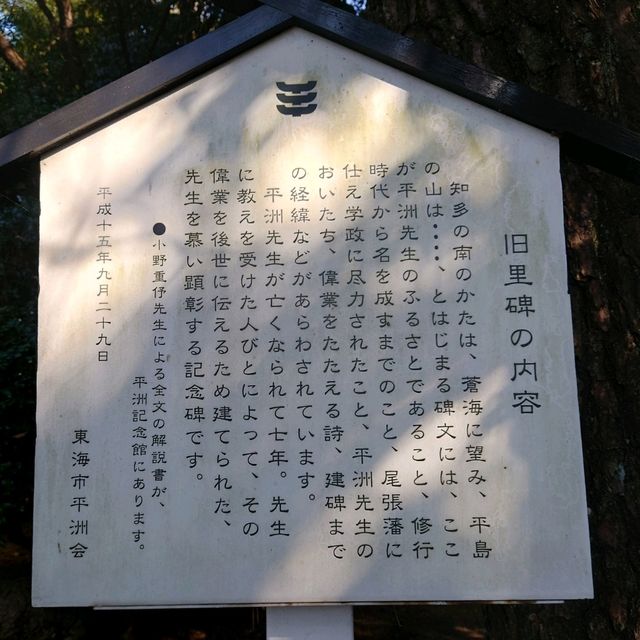 旧里碑の内容
知多の南のかたは、蒼海に望み、平島
の山は‥‥、とはじまる碑文には、ここ
が平洲先生のふるさとであること、修行
時代から名を成すまでのこと、尾張藩に
仕え学政に尽力されたこと、平洲先生の
おいたち、偉業をたたえる詩、建碑まで
の経緯などがあらわされています。
平洲先生が亡くなられて七年。先生
に教えを受けた人びとによって、その
偉業を後世に伝えるため建てられた、
先生を慕い顕彰する記念碑です。
●小野重伃先生による全文の解説書が、
平洲記念館にあります。
平成十五年九月二十九日
東海市平洲会